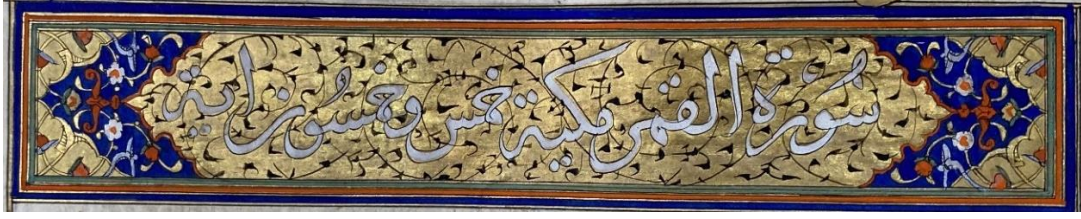 سُورَة القمر مكية خمس وخمسُون اية